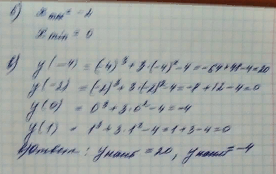 б) xmax = -2
xmin = 0
в) y(-4) = (-4)³ + 3·(-4)² - 4 = -64 + 48 - 4 = 20
y(-2) = (-2)³ + 3·(-2)² - 4 = -8 + 12 - 4 = 0
y(0) = 0³ + 3·0² - 4 = -4
y(1) = 1³ + 3·1² - 4 = 1 + 3 - 4 = 0
Ответ: yнаиб = 20, yнаим = -4